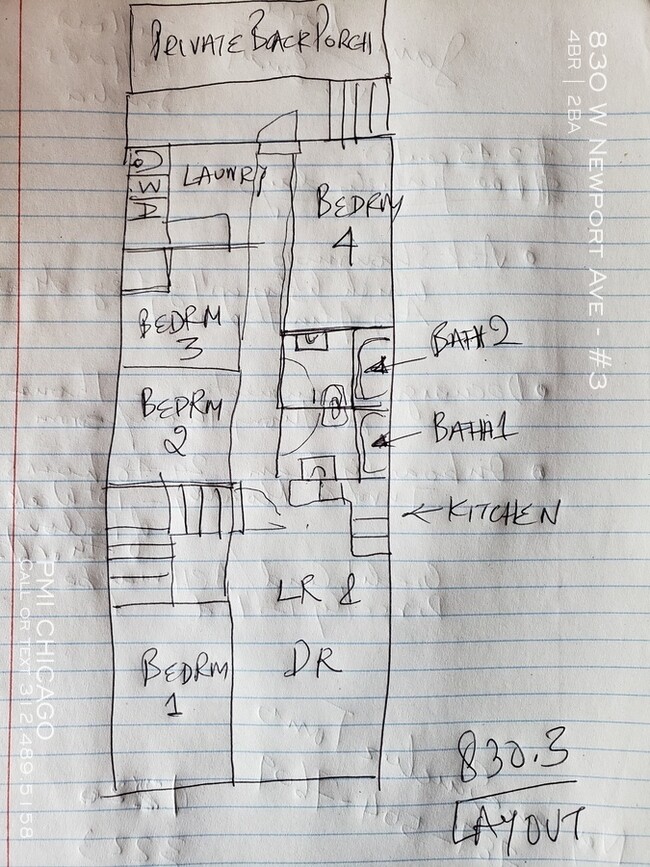 PRIVATE BACK PORCH
830 W NEWPORT AVE - #3
4BR | 2BA
LAUNRY
BEDRM
4
BEDRM
3
BATH 2
BEDRM
2
BATH1
KITCHEN
LR &
DR
BEDRM
1
PMI CHICAGO
CALL OR TEXT 312 489 5158
830.3
LAYOUT